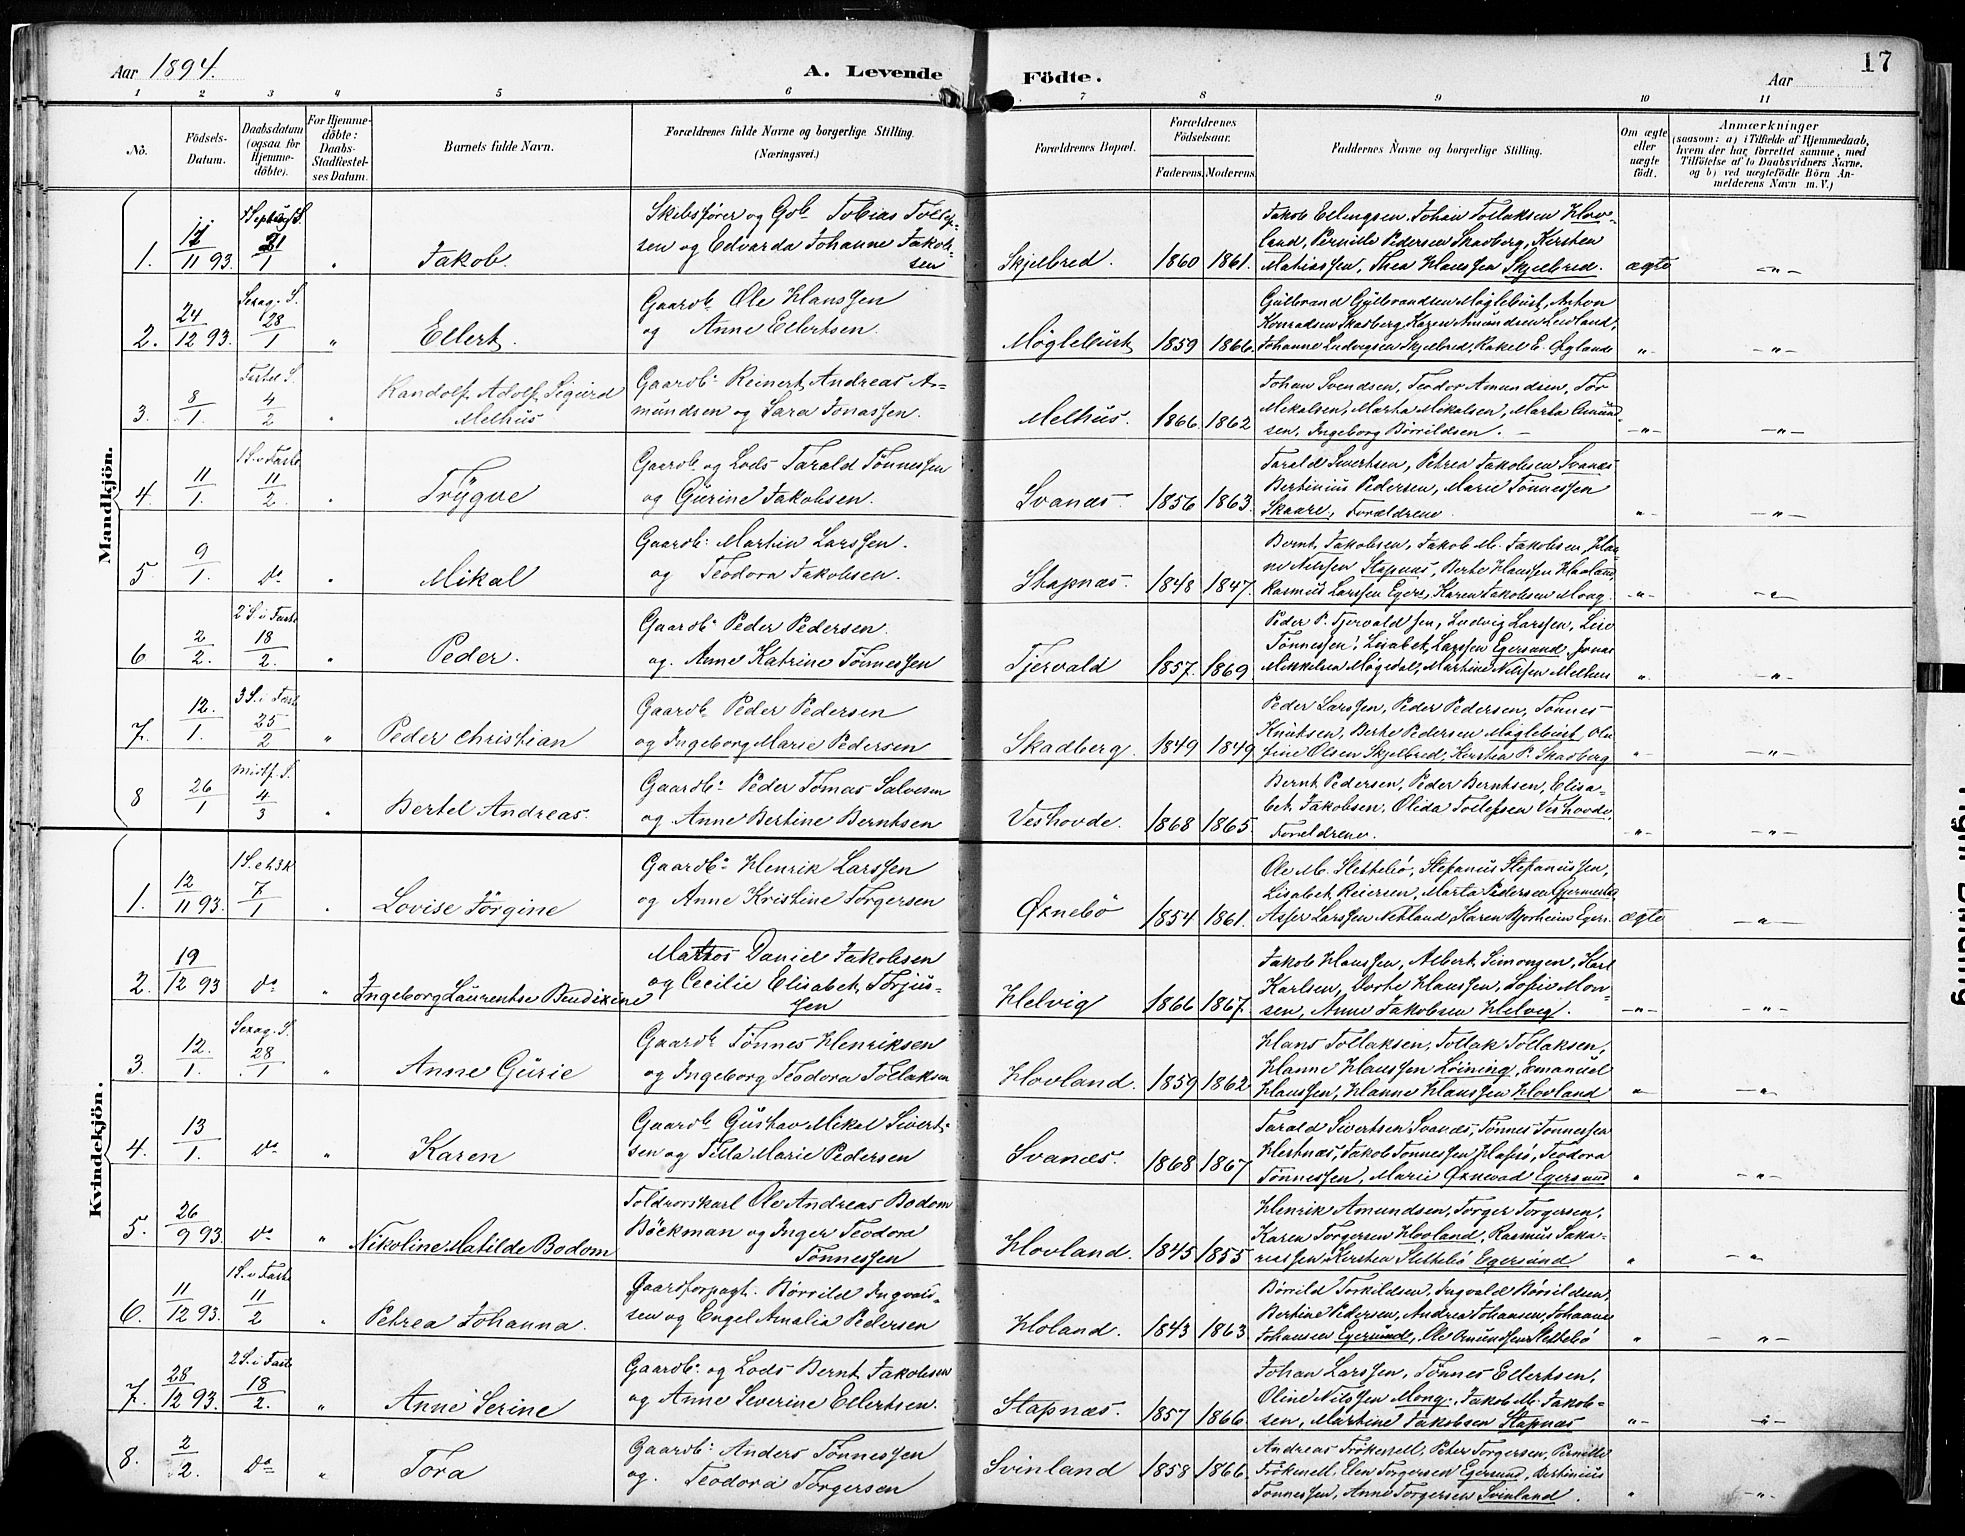 Aar 1894.
A. Levende Födte.
Aar
17
1 2 3 4 5 6 7 8 9 10 11
No.
Födsels-Datum.
Daabsdatum (ogsaa for Hjemme-döbte).
For Hjemme-döbte: Daabs-Stadfæstel-ses Datum.
Barnets fulde Navn.
Forældrenes fulde Navne og borgerlige Stilling. (Næringsvei.)
Forældrenes Bopæl.
Forældrenes Födselsaar.
Faderens. Moderens.
Faddernes Navne og borgerlige Stilling.
Om ægte eller uægte födt.
Anmærkninger
(saasom: a) i Tilfælde af Hjemmedaab, hvem der har forrettet samme, med Tilföielse af to Daabsvidners Navne, og b) ved uægtefödte Börn An-melderens Navn m. V.)
Mandkjön.
1. 11/11 93. 21/1 " Jakob.
Skibsfører og Gb. Tobias Tollef-
sen og Edvarda Johanne Jakob-
sen
Skjelbred. 1860 1861.
Jakob Ellingsen, Johan Tollaksen Hov-
land, Pernille Pedersen Skadberg, Kirsten
Mathiassen, Thea Hanssen Skjelbred. ægte -"-
2. 24/12 93. Sexag. S. 28/1 " Ellert.
Gaardb. Ole Hanssen
og Anne Ellertsen.
Møglebust 1859 1866.
Gulbrand Gulbrandsen Møglebust, Anton
Konradsen Skadberg, Karen Amundsen Leidland,
Johanne Ludvigsen Skjelbred, Rakel E. Øglend "- -"-
3. 8/1. Fastel. S. 4/2 " Randolf Adolf Sigurd
Melhus
Gaardb. Reinert Andreas A-
mundsen og Sara Jonassen.
Melhus. 1866 1862
Johan Svendsen, Teodor Amundsen, Tor
Mikalsen, Marta Mikalsen, Marta Amund-
sen, Ingeborg Børrildsen. -"- -"-
4. 11/1. 1 S. i Faste 11/2. " Trygve
Gaardb. og Lods Tarald Tønnessen
og Gurine Jakobsen.
Svanæs. 1856 1863.
Tarald Sivertsen, Petrea Jakobsen Svanæs
Bertinius Pedersen, Marie Tønnessen
Skaare, Forældrene. "- -"-
5. 9/1. do " Mikal
Gaardb. Martin Larssen.
og Teodora Jakobsen.
Stapnæs. 1848 1847.
Bernt Jakobsen, Jakob M. Jakobsen, Han-
ne Nilssen Stapnæs, Berte Hanssen Hovland,
Rasmus Larssen Eger., Karen Jakobsen Mong. -"- -"-
6 2/2. 2 S. i Faste 18/2. " Peder.
Gaardb. Peder Pedersen.
og Anne Katrine Tønnessen
Tjervald 1857. 1869
Peder P. Tjervald sen, Ludvig Larssen, Lise
Tønnessen, Lisabet Larssen Egersund, Jonas
Mikkelsen Møgedal, Martine Nilssen Melhus "- -"-
7. 12./1. 3 S. i Fast 25/2 " Peder Christian
Gaardb. Peder Pedersen
og Ingeborg Marie Pedersen
Skadberg. 1849 1849.
Peder Larssen, Peder Pedersen, Tønnes
Knudsen, Berte Pedersen Møglebust, Olu-
fine Olsen Skjelbred, Kirstea P. Skadberg "- -"-
8 26/1 Midtf. S. 4/3 " Bertel Andreas.
Gaardb. Peder Tomas Salvesen
og Anne Bertine Berntsen
Veshovde. 1868 1865.
Bernt Pedersen, Peder Berntsen, Elisa-
bet Jakobsen, Olida Tollefsen Veshovde,
Forældrene. -"- -"-
Kvindekjön.
1. 12/11 93. 1 S. e. h3k 7/1 " Lovise Jørgine
Gaardb. Henrik Larssen
og Anne Kristine Torgersen
Øxnebø 1854 1861.
Ole M. Slettebø, Stefanus Stefanussen,
Lisabet Reiersen, Marta Pedersen Gjermestad,
Asser Larssen Netland, Karen Bjorheim Eger. ægte -"-
2. 19/12 93 do " Ingeborg Laurentse Bendixine
Matros Daniel Jakobsen
og Cecilie Elisabet Torjus-
sen
Helvig 1866 1867.
Jakob Hanssen, Albert Simonsen, Karl
Karlsen, Dorte Hanssen, Sofie Mon-
sen, Anne Jakobsen Helvig. -"- -"-
3. 12./1. Sexag. S. 28/1 " Anne Gurie
Gaardb. Tønnes Henriksen
og Ingeborg Teodora Tollaksen
Hovland. 1859 1862
Hans Tollaksen, Tollak Tollaksen,
Hanne Hanssen Løining, Emanuel
Hanssen, Hanne Hanssen Hovland "- -"-
4. 13/1. do " Karen
Gaardb. Gustav Mikal Sivert-
sen og Tilla Marie Pedersen
Svanæs. 1868 1867
Tarald Sivertsen Svanæs, Tønnes Tønnessen
Hestnæs, Jakob Tønnessen Hafsø, Teodora
Tønnessen, Marie Øxnevad Egersund " -"-
5. 26/9 93. do " Nikoline Matilde Bodom
Toldrorskarl Ole Andreas Bodom
Böckman og Inger Teodora
Tønnessen
Hovland. 1845 1855
Henrik Amundsen, Torger Torgersen,
Karen Torgersen Hovland, Rasmus Saka-
riassen, Kirsten Slettebø Egersund " -"-
6. 11/12 93. 1 S. i Faste 11/2 " Petrea Johanna.
Gaardforpagt. Børrild Ingvald-
sen og Engel Amalia Pedersen
Holand. 1843 1863.
Børrild Torkildsen, Ingvald Børrildsen,
Bertine Pedersen, Andrea Johansen, Johanne
Johansen Egersund, Ole Amundsen Slettebø " - "-
7. 28/12 93. 2 S. i Faste 18/2. " Anne Serine
Gaardb. og Lods Bernt Jakobsen
og Anne Severine Ellertsen.
Stapnæs. 1857 1866.
Johan Larssen, Tønnes Ellertsen,
Oline Nilssen Mong, Jakob M. Jakob-
sen, Martine Jakobsen Stapnæs "- -"-
8. 2/2. do " Tora
Gaardb. Anders Tønnessen
og Teodora Torgersen
Svinland 1858 1866.
Andreas Frøkenell, Peter Torgersen, Pernille
Frøkenell, Elen Torgersen Egersund, Bertinius
Tønnessen, Anne Torgersen Svinland. " -"-